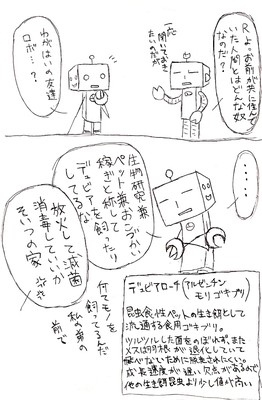 Rよ。お前が共に住んで
いた人間とはどんな奴
なのだ?
一応
聞いておき
たいのだが
わがはいの友達
ロボ…?
・・・・
生物研究兼
ペット兼おこづかい
稼ぎと称して
デュビアを飼ったり
してるな
放火して滅菌
消毒していいか
そいつの家
何てモノを
飼ってるんだ
私の弟の
前で
デュビアローチ(アルゼンチン
モリゴキブリ)
昆虫食性ペットの生き餌として
流通する食用ゴキブリ。
ツルツルした面をのぼれず、また
メスは羽根が退化していて
飛べないために脱走されにくい。
成長速度が遅い欠点があるので
他の生き餌昆虫より少し値が高い